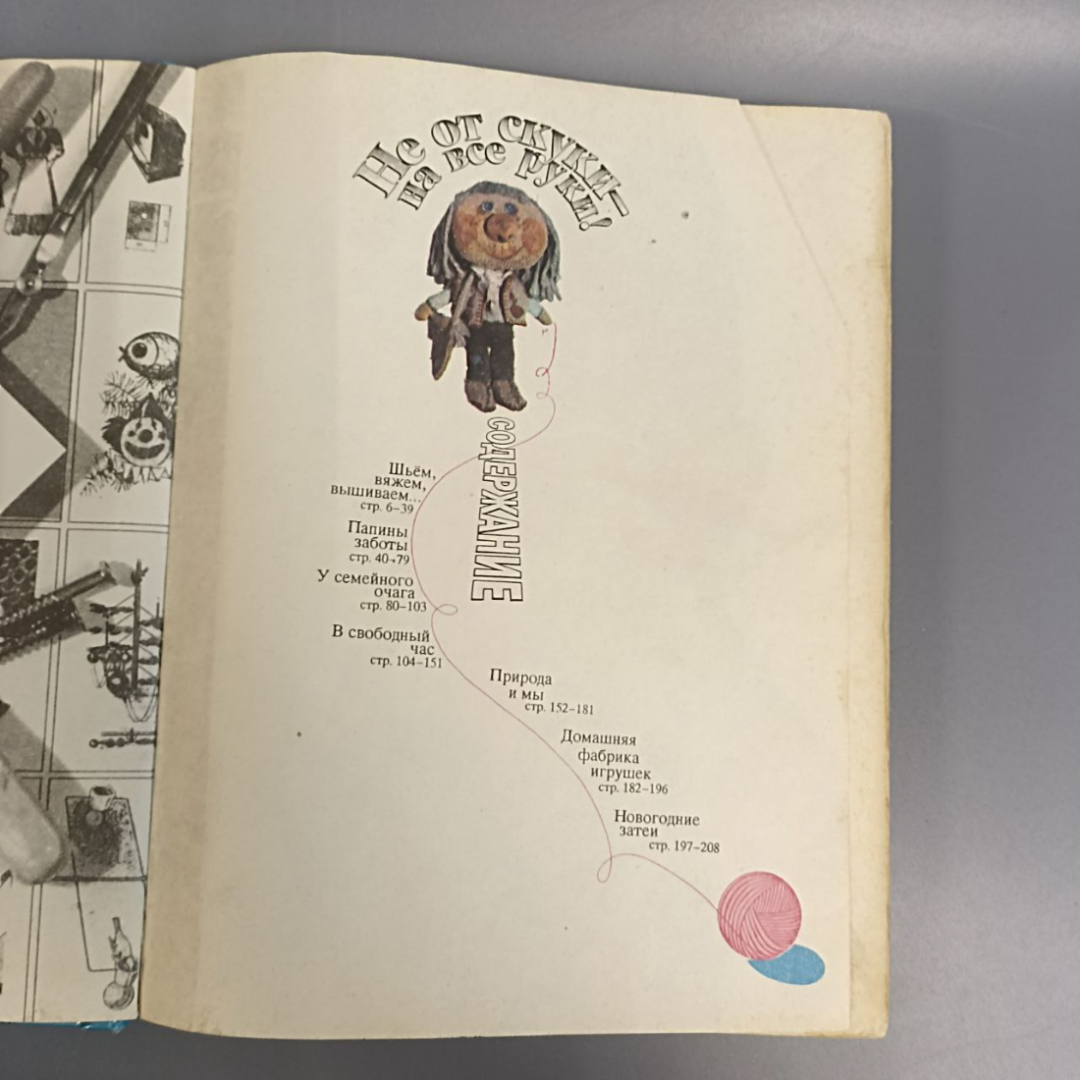 Не от скуки–
на все руки!
СОДЕРЖАНИЕ
Шьём,
вяжем,
вышиваем...
стр. 6–39
Папины
заботы
стр. 40–79
У семейного
очага
стр. 80–103
В свободный
час
стр. 104–151
Природа
и мы
стр. 152–181
Домашняя
фабрика
игрушек
стр. 182–196
Новогодние
затеи
стр. 197–208